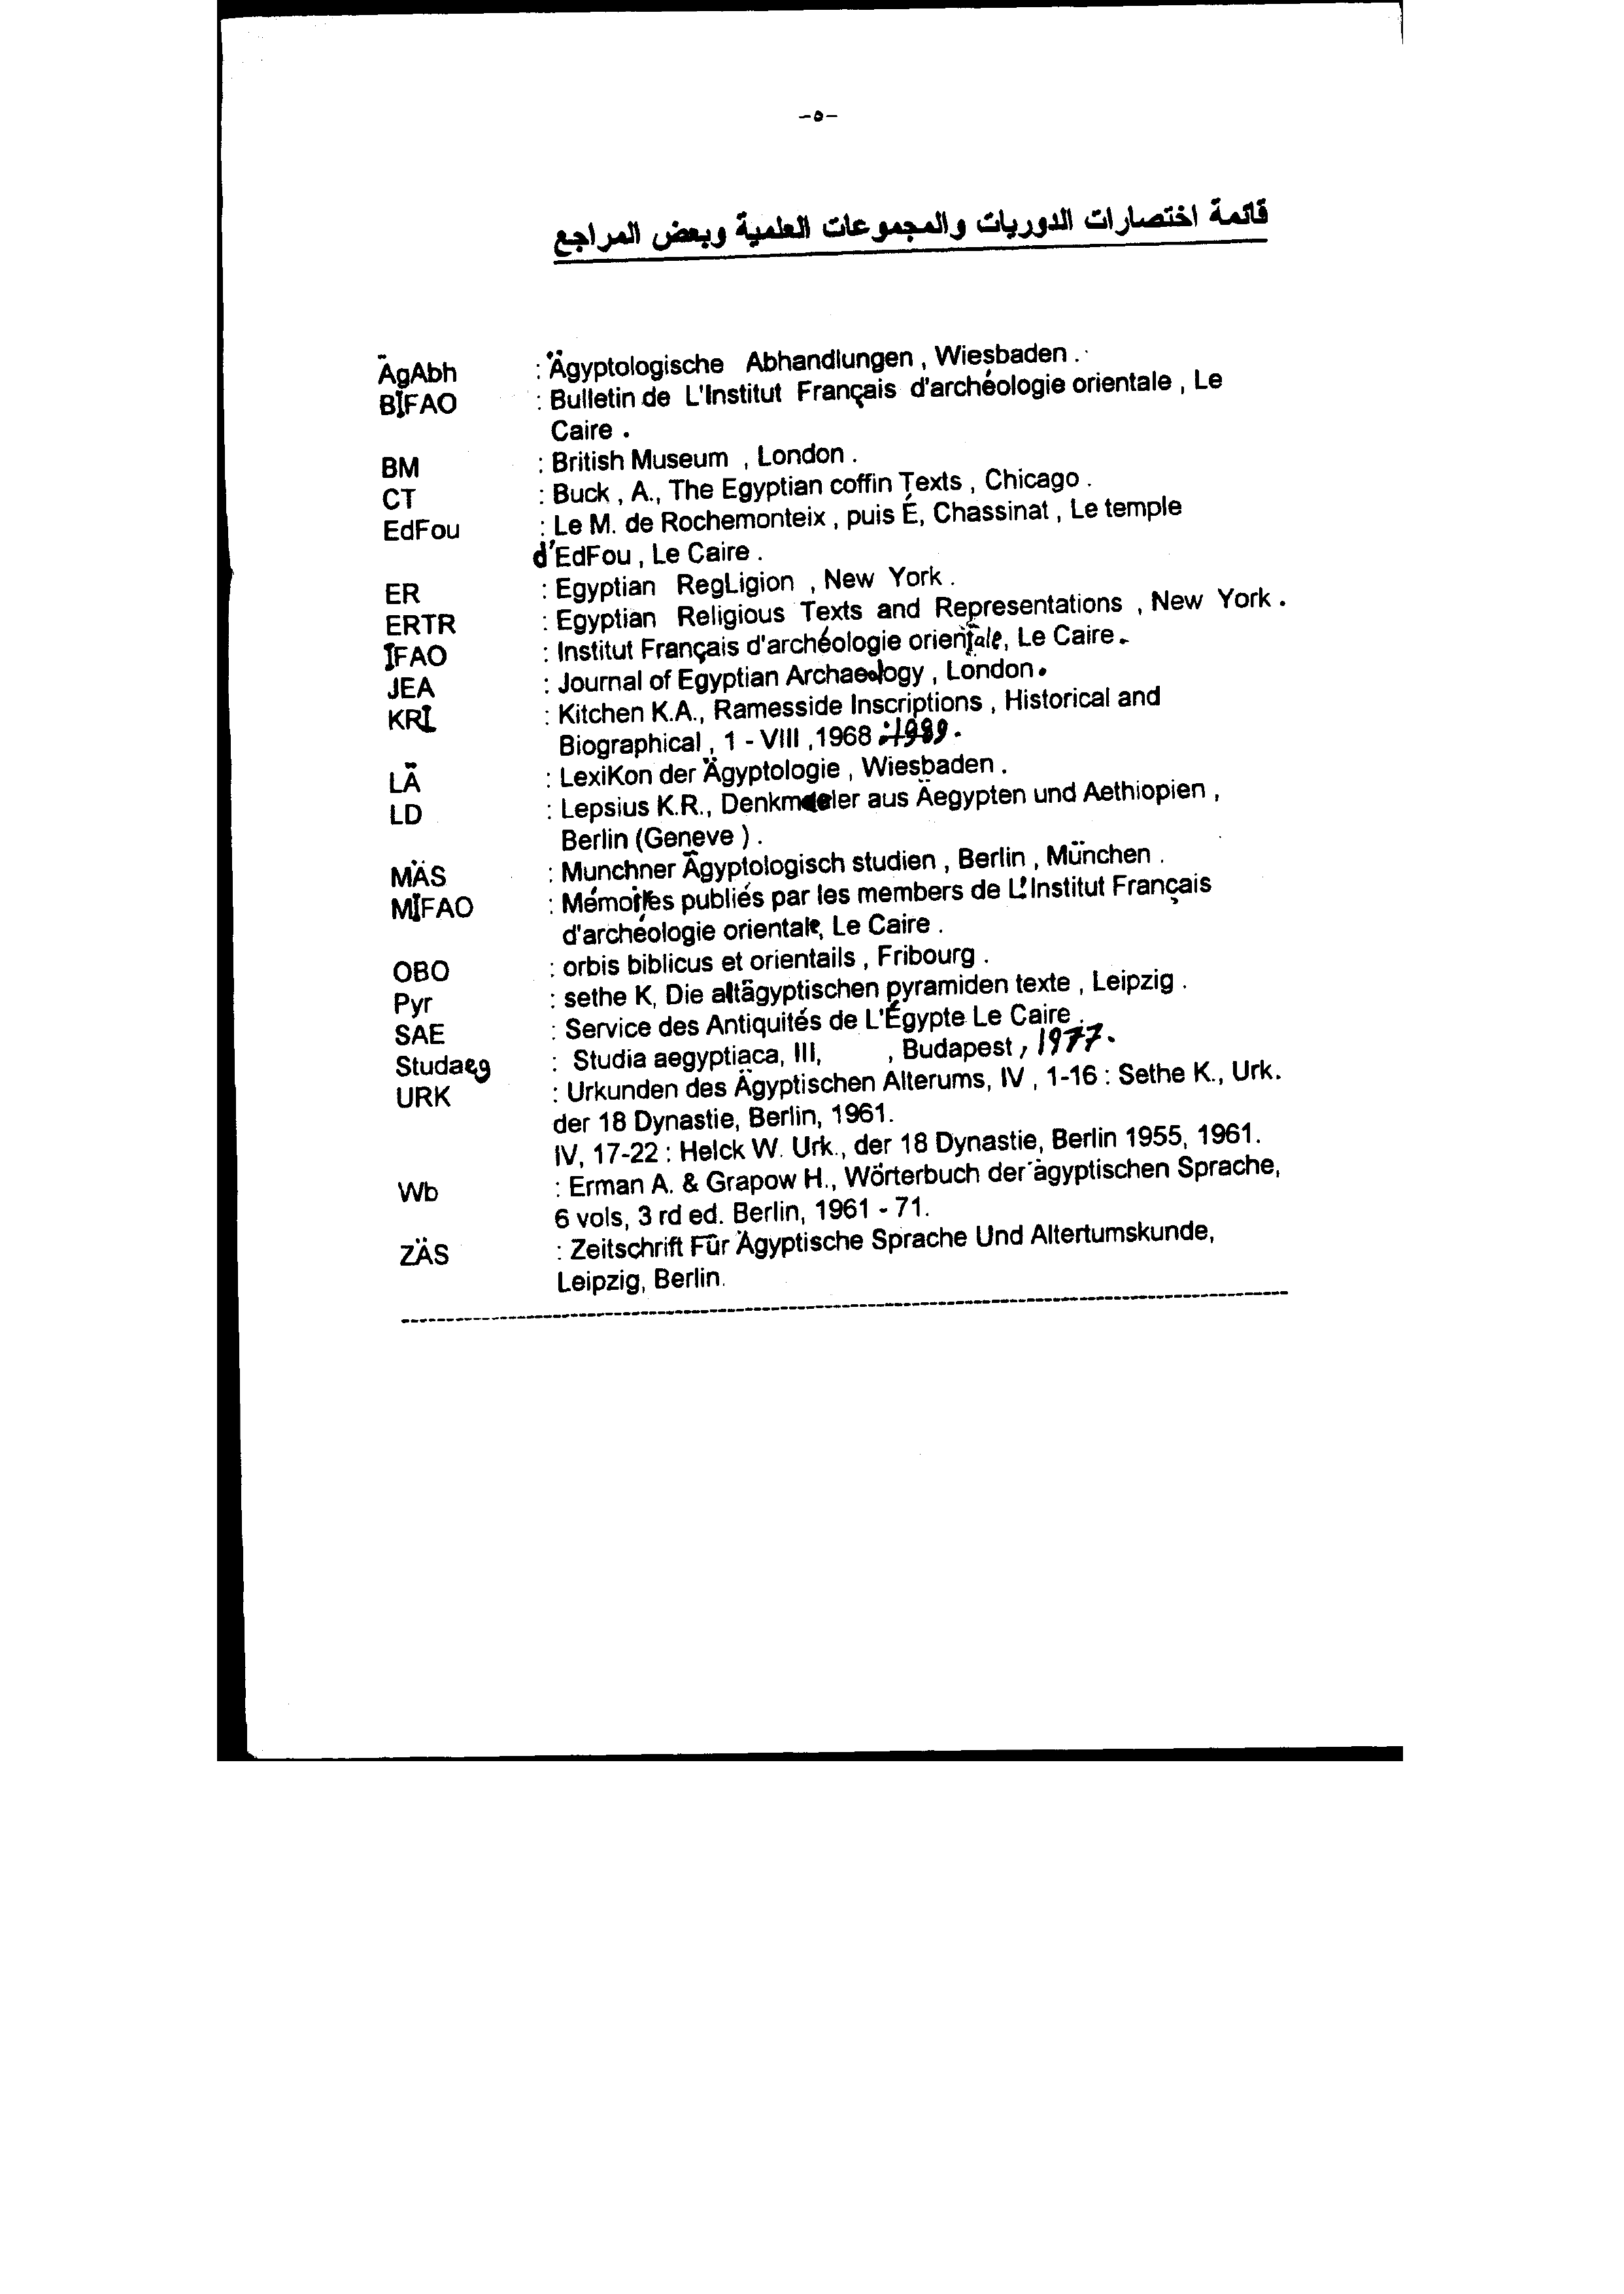 -٥-
قائمة اختصارات الدوريات والمجموعات العلمية وبعض المراجع
ÄgAbh : Ägyptologische Abhandlungen , Wiesbaden .
BIFAO : Bulletin de L'Institut Français d'archéologie orientale , Le
Caire .
BM : British Museum , London .
CT : Buck , A., The Egyptian coffin Texts , Chicago .
EdFou : Le M. de Rochemonteix , puis É, Chassinat , Le temple
d'EdFou , Le Caire .
ER : Egyptian RegLigion , New York .
ERTR : Egyptian Religious Texts and Representations , New York .
IFAO : Institut Français d'archéologie orientale, Le Caire .
JEA : Journal of Egyptian Archaeology , London .
KRI : Kitchen K.A., Ramesside Inscriptions , Historical and
Biographical , 1 - VIII ,1968 :1989.
LÄ : LexiKon der Ägyptologie , Wiesbaden .
LD : Lepsius K.R., Denkmaeler aus Äegypten und Aethiopien ,
Berlin (Geneve ) .
MÄS : Munchner Ägyptologisch studien , Berlin , München .
MIFAO : Mémoires publiés par les members de L'Institut Français
d'archéologie orientale, Le Caire .
OBO : orbis biblicus et orientails , Fribourg .
Pyr : sethe K, Die altägyptischen pyramiden texte , Leipzig .
SAE : Service des Antiquités de L'Égypte Le Caire .
Studaeg : Studia aegyptiaca, III, , Budapest , 1977.
URK : Urkunden des Ägyptischen Alterums, IV , 1-16 : Sethe K., Urk.
der 18 Dynastie, Berlin, 1961.
IV, 17-22 : Helck W. Urk., der 18 Dynastie, Berlin 1955, 1961.
Wb : Erman A. & Grapow H., Wörterbuch der àgyptischen Sprache,
6 vols, 3 rd ed. Berlin, 1961 - 71.
ZÄS : Zeitschrift Für Ägyptische Sprache Und Altertumskunde,
Leipzig, Berlin.